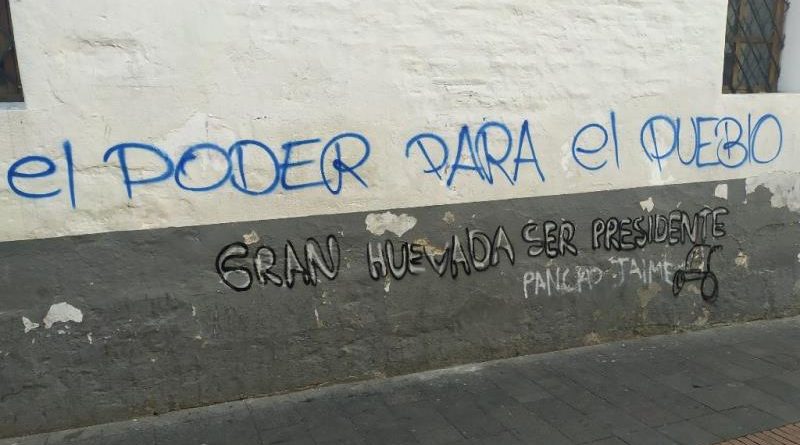 el PODER PARA el PUEBlO
GRAN HUEVADA SER PRESIDENTE
PANCHO JAIME